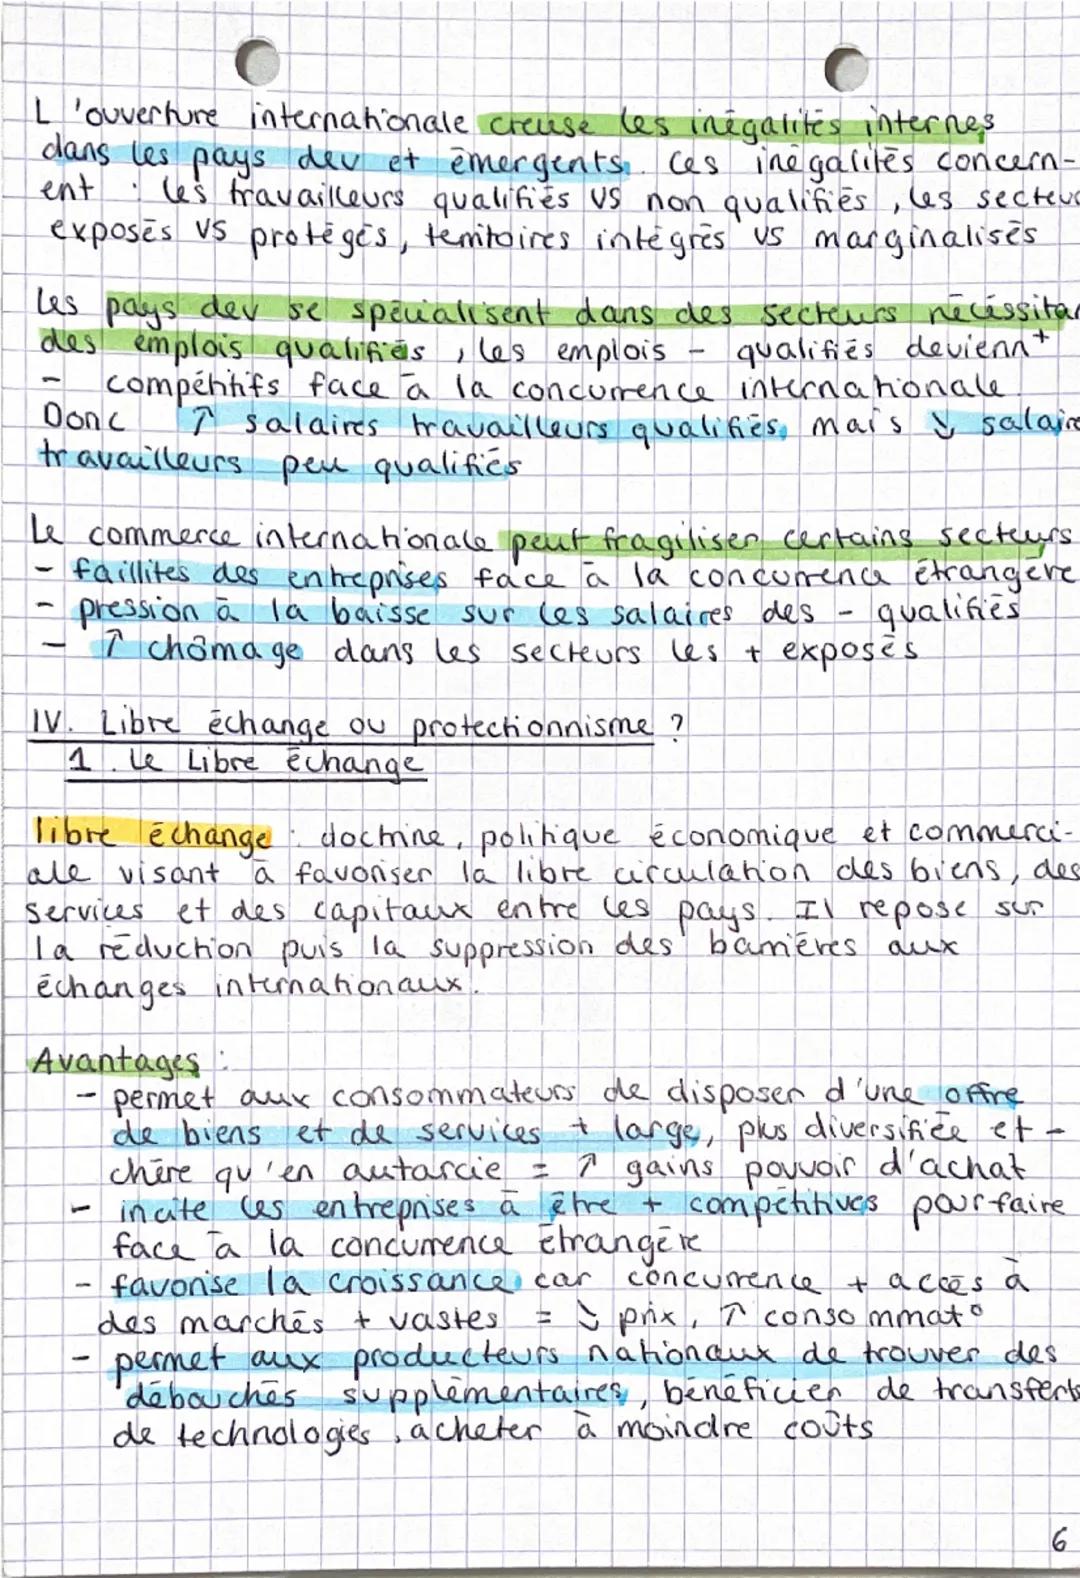 L'ouverture internationale creuse les inégalités internes
dans les pays dev et émergents. Ces inégalités concern-
ent : les travailleurs qualifiés VS non qualifiés, les secteu
exposés VS protégés, territoires intégrés VS marginalisés
Les pays dev se spécialisent dans des secteurs nécéssita
des emplois qualifiés, les emplois - qualifiés devienn+
- compétitifs face à la concurrence internationale
Donc ↑ salaires travailleurs qualifiés, mais ↓ salaire
travailleurs peu qualifiés
Le commerce internationale peut fragiliser certains secteurs
- faillites des entreprises face à la concurrence étrangère
- pression à la baisse sur les salaires des - qualifiés
- ↑ chômage dans les secteurs les + exposés
IV. Libre échange ou protectionnisme ?
1. Le Libre échange
libre échange : doctrine, politique économique et commerci-
ale visant à favoriser la libre circulation des biens, des
services et des capitaux entre les pays. Il repose sur
la réduction puis la suppression des barrières aux
échanges internationaux.
Avantages :
- permet aux consommateurs de disposer d'une offre
de biens et de services + large, plus diversifiée et -
chère qu'en autarcie = ↑ gains pouvoir d'achat
- incite les entreprises à être + compétitives pour faire
face à la concurrence étrangère
- favorise la croissance car concurrence + accès à
des marchés + vastes = ↓ prix, ↑ consommat°
- permet aux producteurs nationaux de trouver des
débouchés supplémentaires, bénéficier de transferts
de technologies, acheter à moindre coûts
6